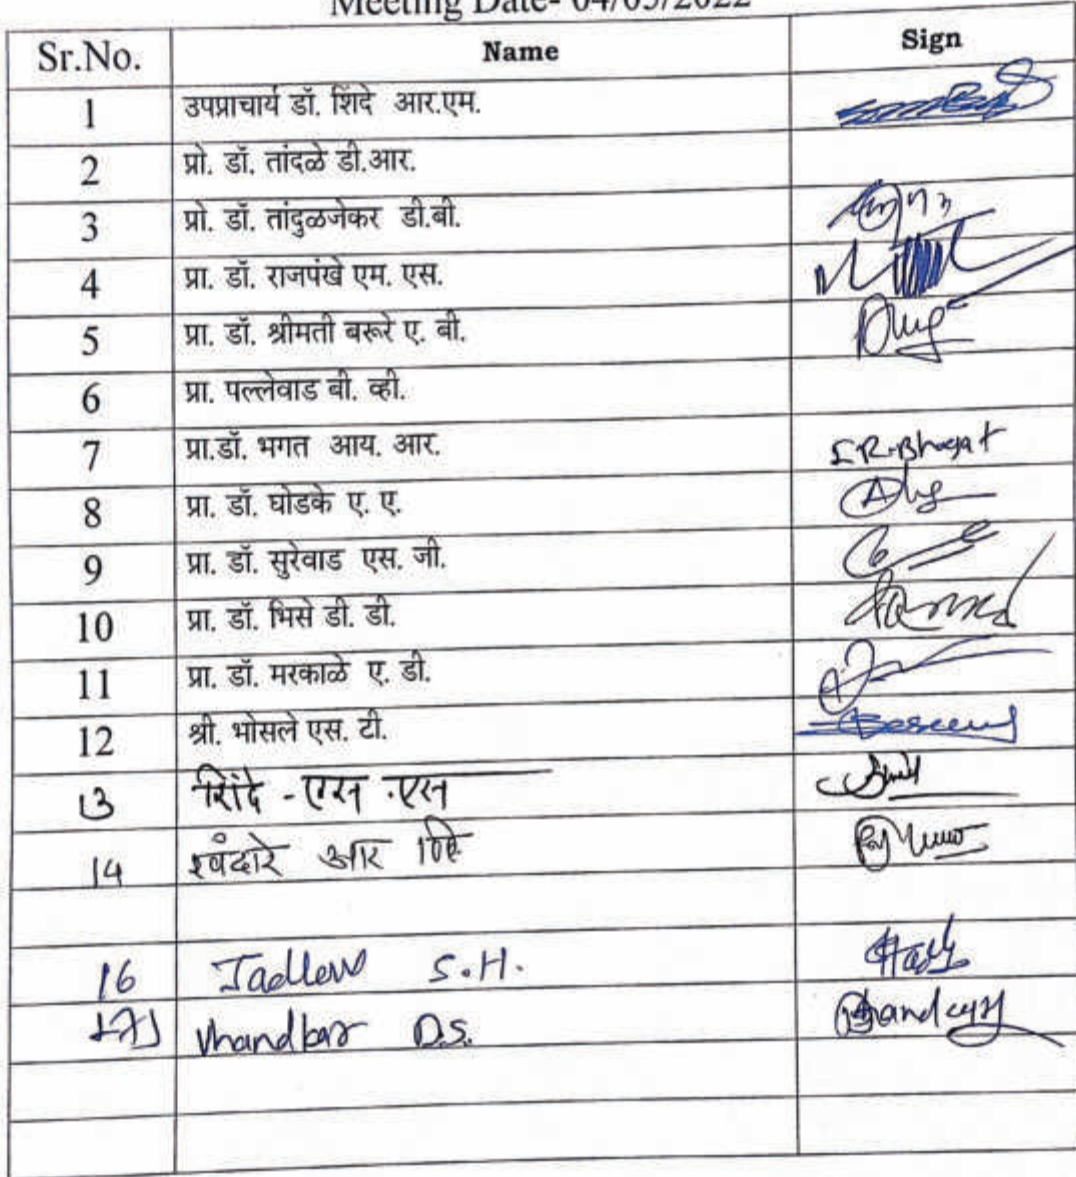 Meeting Date- 04/05/2022
Sr.No. Name Sign
1 उपप्राचार्य डॉ. शिंदे आर.एम.
2 प्रो. डॉ. तांदळे डी.आर.
3 प्रो. डॉ. तांदुळजेकर डी.बी.
4 प्रा. डॉ. राजपंखे एम. एस.
5 प्रा. डॉ. श्रीमती बरूरे ए. बी.
6 प्रा. पल्लेवाड बी. व्ही.
7 प्रा.डॉ. भगत आय. आर. I.R.Bhagat
8 प्रा. डॉ. घोडके ए. ए.
9 प्रा. डॉ. सुरेवाड एस. जी.
10 प्रा. डॉ. भिसे डी. डी.
11 प्रा. डॉ. मरकाळे ए. डी.
12 श्री. भोसले एस. टी.
13 शिंदे - एस .एस
14 खंदारे आर
16 S.H.
17 D.S.